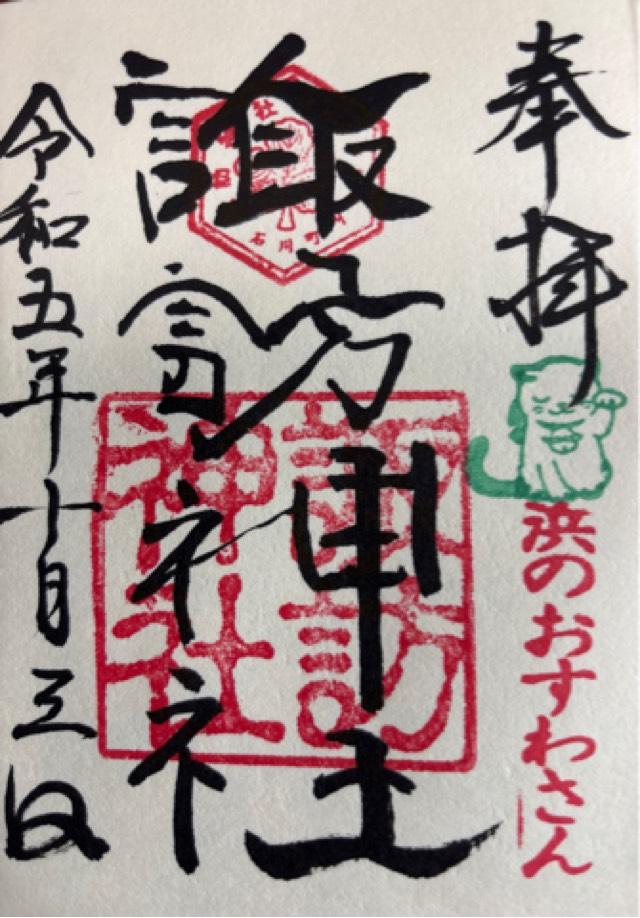 奉拝
浜のおすわさん
諏訪神社
諏訪
神社
石川町
令和五年十月三日